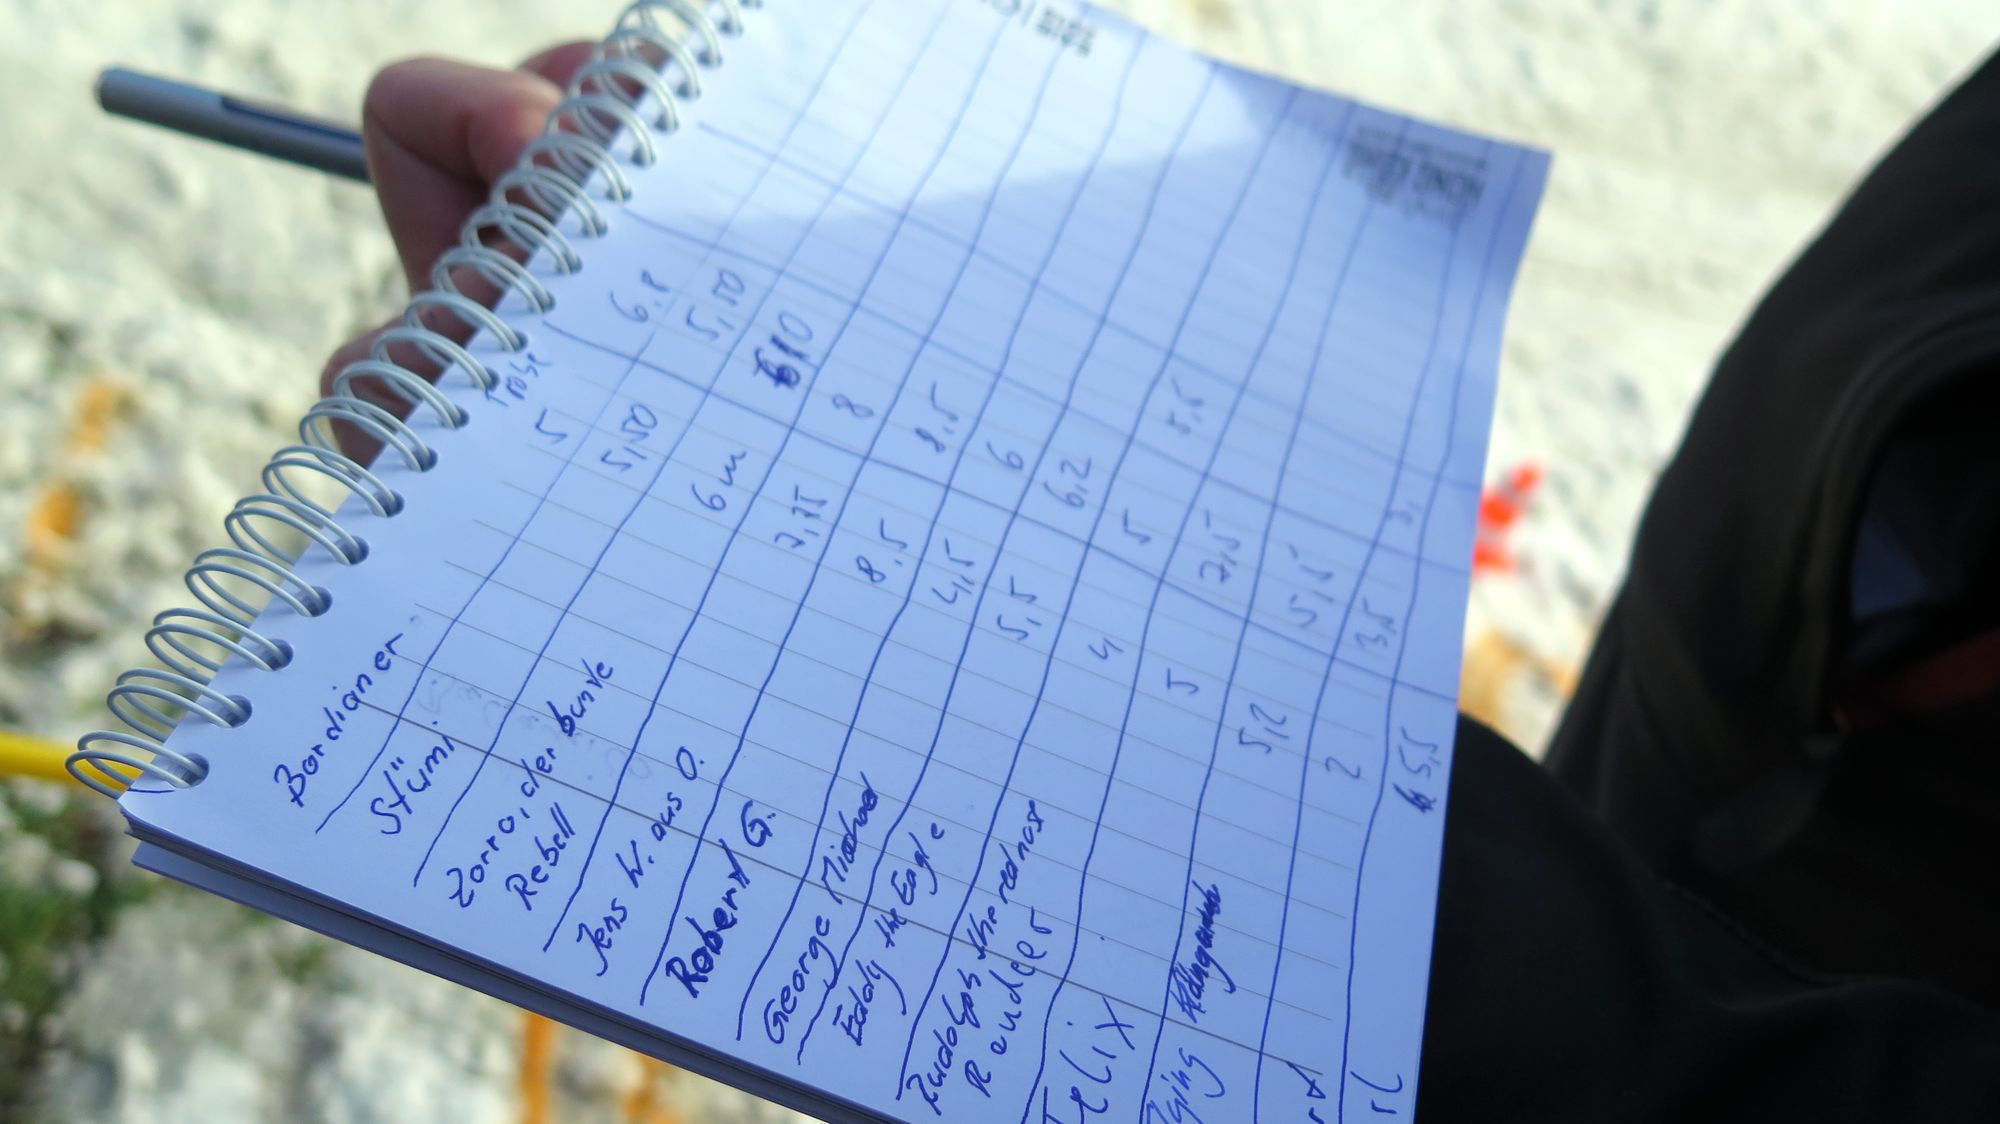 Probe
Bordianer 5 6,8
Stümi 5,50 5,50
Zorro, der bunte 6m 6,10
Rebell
Jens W. aus O. 7,75 8
Robert G. 8,5 8,5
George Michael 4,5 6
Eddy the Eagle 5,5 6,2
Rudolph the rednose 4 5
Reudeer
Felix 5 7,5 5,5
Flying Känguruh 5,2 5,5
2 3,5 3,
5,5